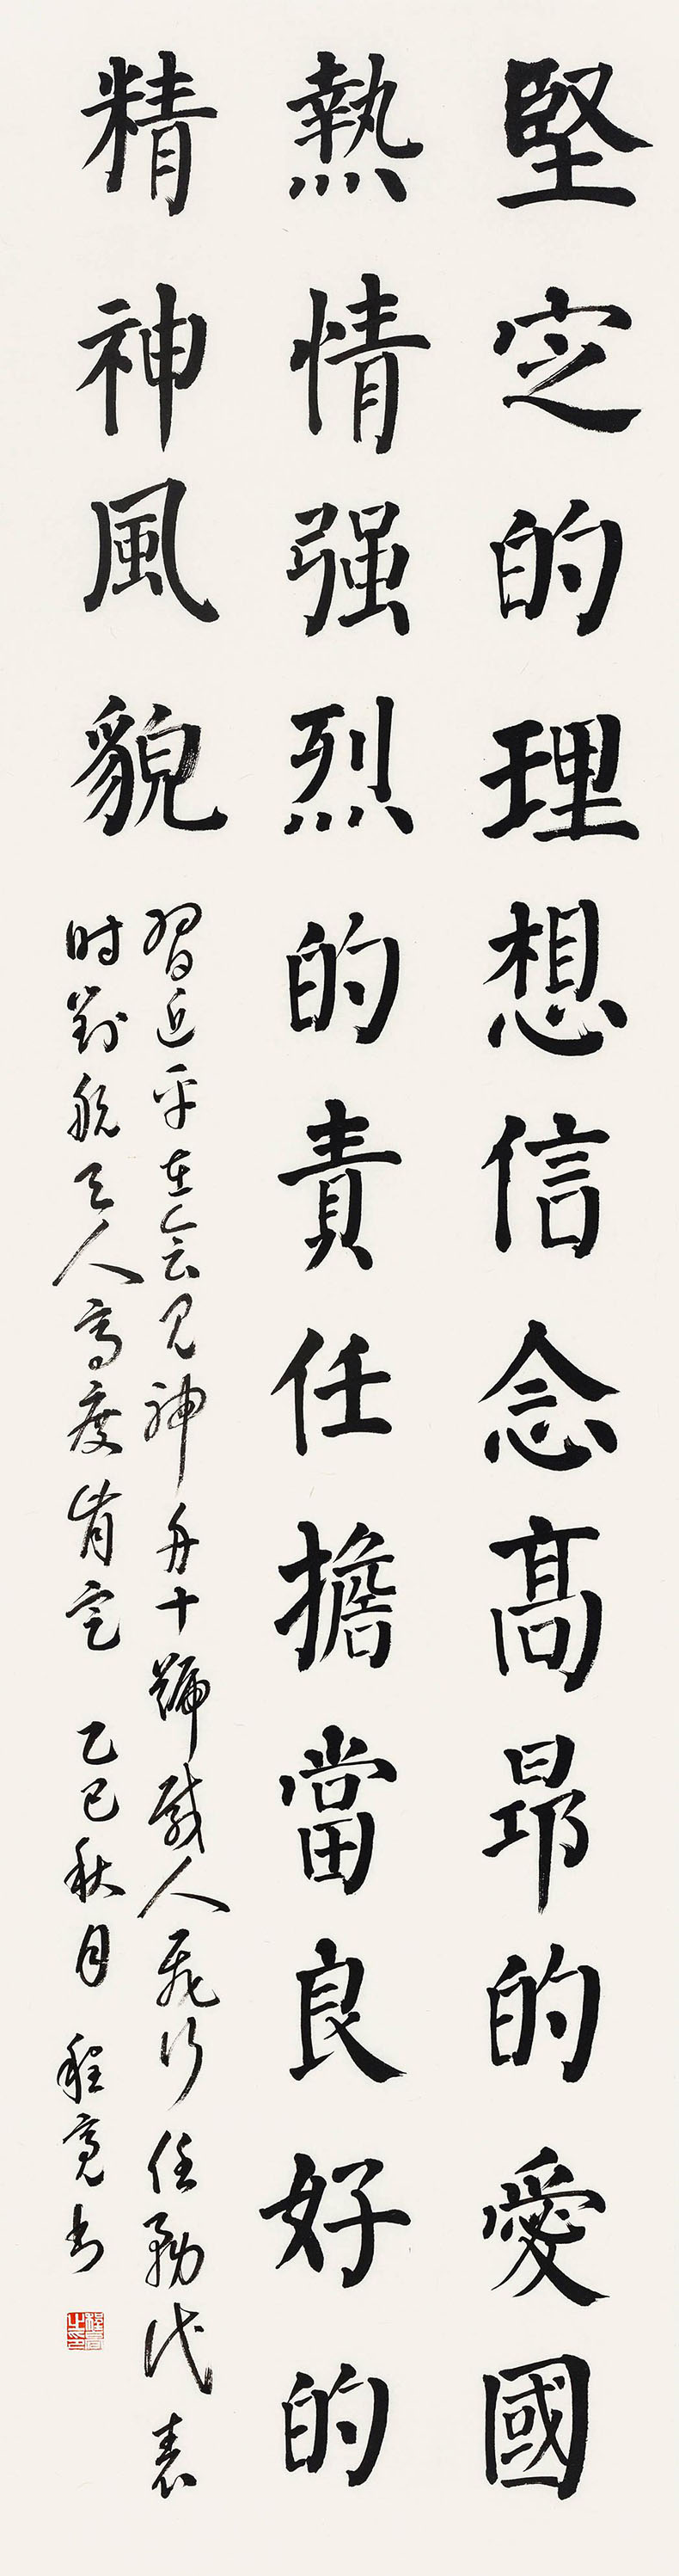 堅定的理想信念高昂的愛國
熱情强烈的責任擔當良好的
精神風貌
習近平在會见神舟十號载人飛行任務代表
时對航天人高度肯定 乙巳秋月 程寬书